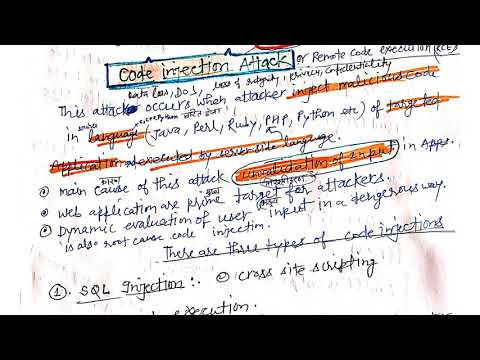 Code injection Attack or Remote code execution (RCE)
Data loss, DOS, loss of integrity, privacy, confidentiality
This attack occurs when attacker inject malicious code
in language (Java, Perl, Ruby, PHP, Python etc) of targeted
Application and executed by server side language.
main cause of this attack unvalidation of input in Apps.
कारण
web application are prime target for attackers.
Dynamic evaluation of user input in a dangerous way.
is also root cause code injection.
There are three types of code injections
1. SQL Injection:- cross site scripting
execution.